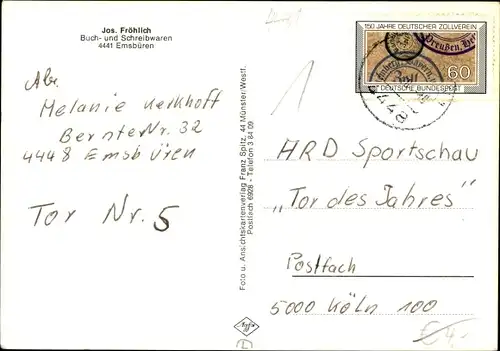 Jos. Fröhlich
Buch- und Schreibwaren
4441 Emsbüren
Abs.
Melanie Kerkhoff
Bernter Nr. 32
4448 Emsbüren
Tor Nr. 5
Foto u. Ansichtskartenverlag Franz Spitz, 44 Münster/Westf.
Postfach 6928 - Telefon 3 84 09
150 JAHRE DEUTSCHER ZOLLVEREIN
60
DEUTSCHE BUNDESPOST
1
ARD Sportschau
„Tor des Jahres"
Postfach
5000 Köln 100
€ 4,-